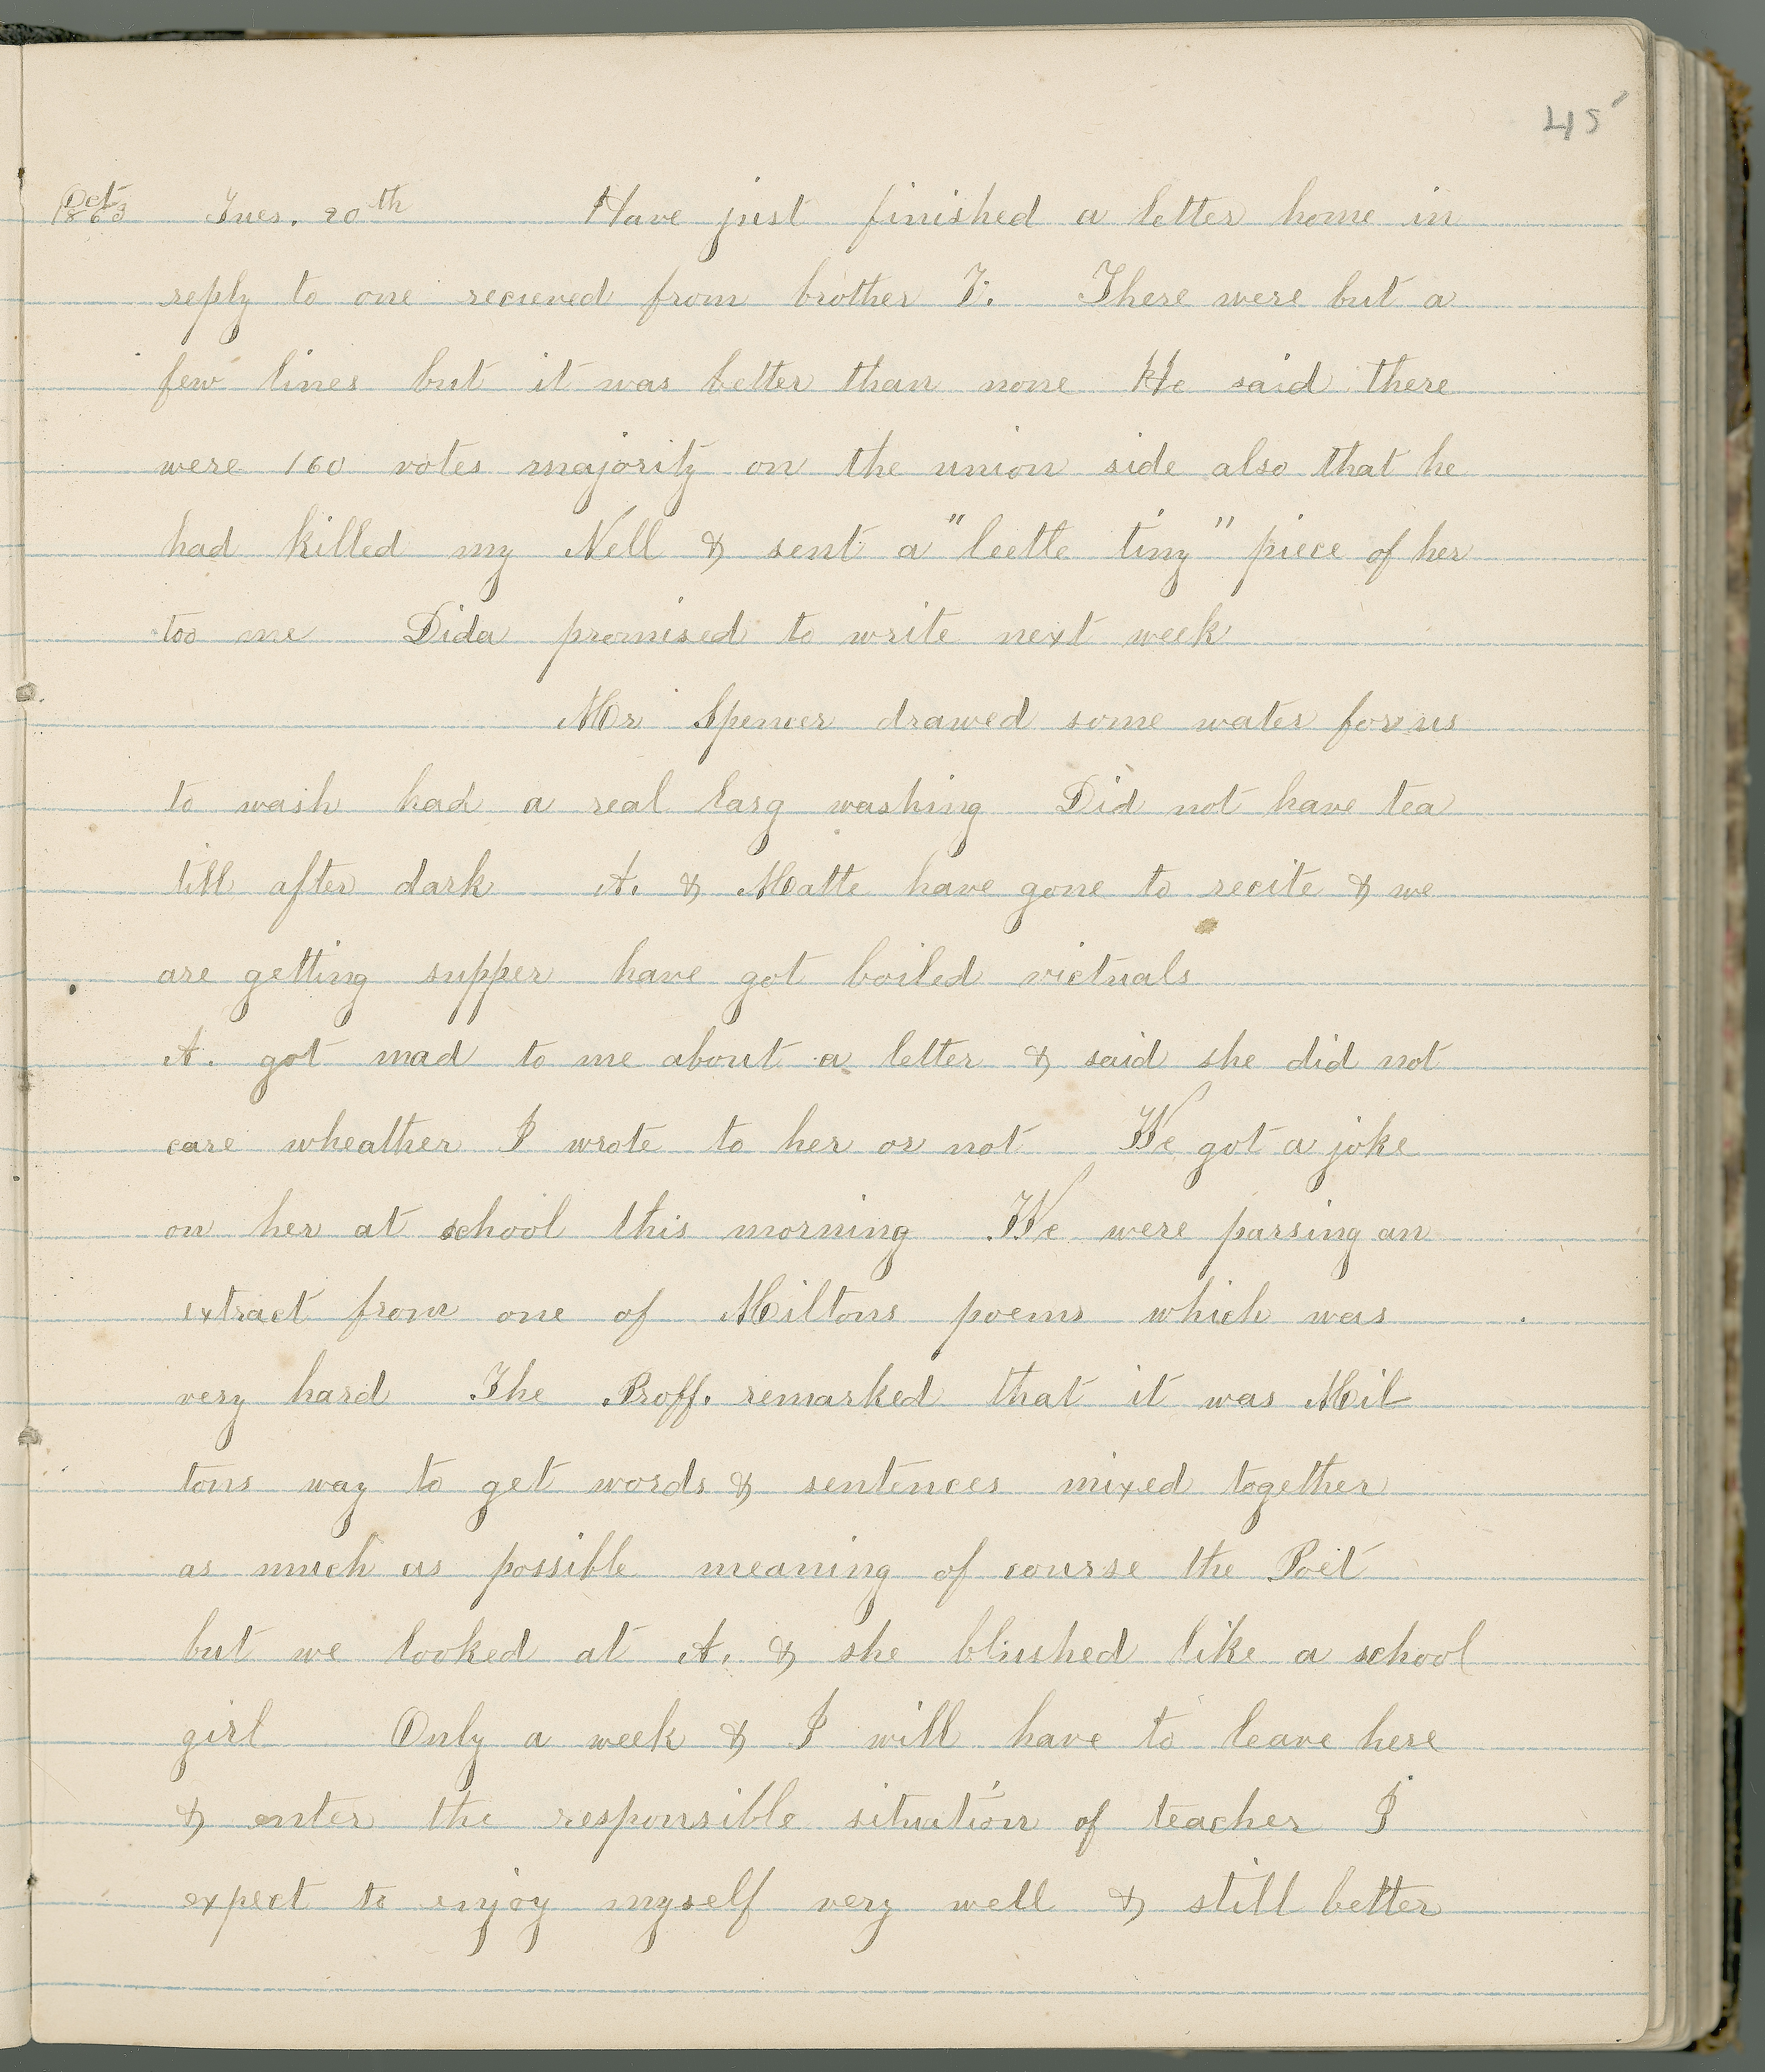 45
Oct 1863 Tues. 20th Have just finished a letter home in
reply to one recieved from brother T. There were but a
few lines but it was better than none He said there
were 160 votes majority on the union side also that he
had killed my Nell & sent a "leetle tiny" piece of her
too me Dida promised to write next week
Mr Spencer drawed some water for us
to wash had a real larg washing Did not have tea
till after dark A. & Matte have gone to recite & we
are getting supper have got boiled victuals
A. got mad to me about a letter & said she did not
care wheather I wrote to her or not We got a joke
on her at school this morning We were parsing an
extract from one of Miltons poems which was
very hard The Proff. remarked that it was Mil
tons way to get words & sentences mixed together
as much as possible meaning of course the Poet
but we looked at A. & she blushed like a school
girl Only a week & I will have to leave here
& enter the responsible situation of teacher I
expect to enjoy myself very well & still better